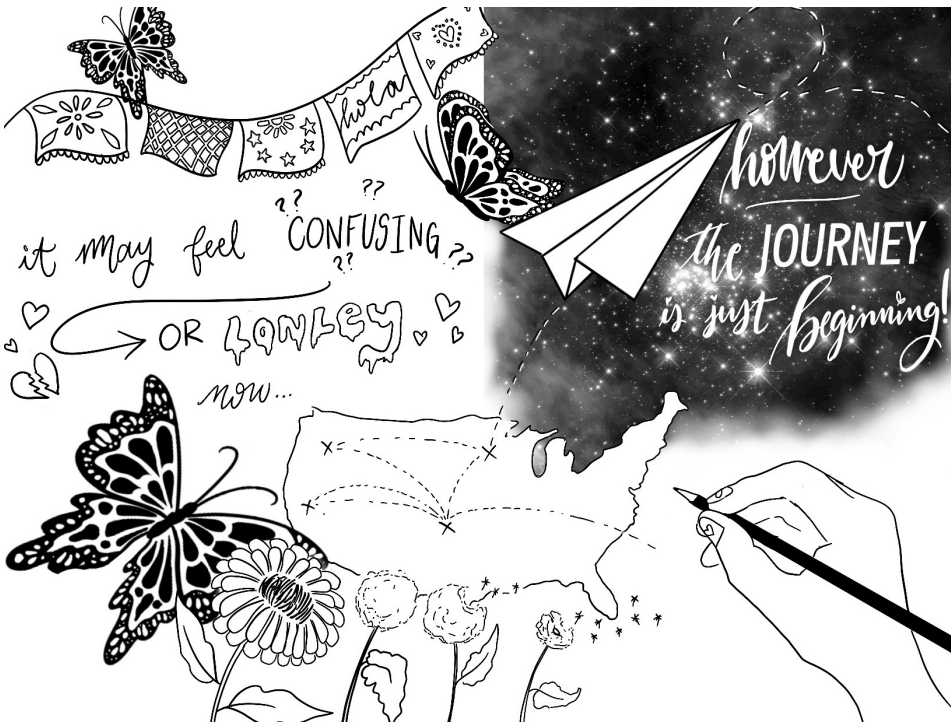 hola
it may feel CONFUSING
?? ?? ?? ??
OR LONLEY
now...
however
the JOURNEY
is just beginning!